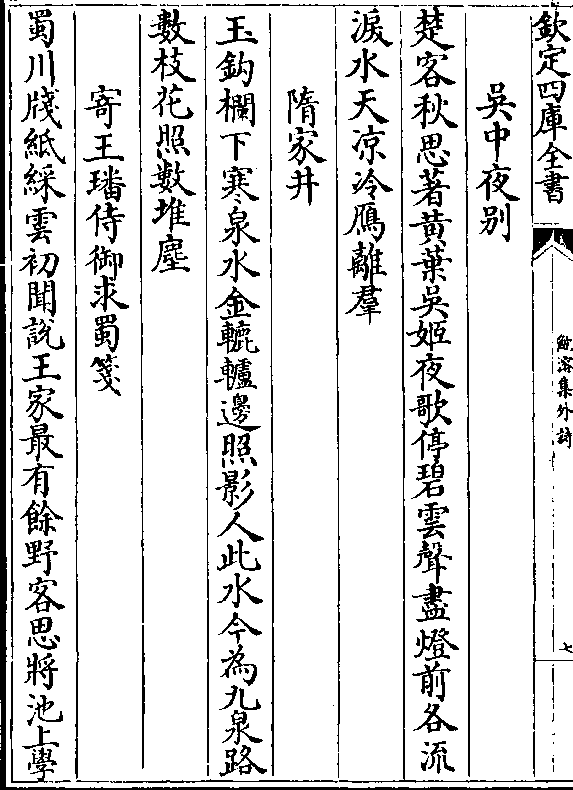 欽定四庫全書
鮑溶集外詩
七
吳中夜别
楚客秋思著黃葉吳姬夜歌停碧雲聲盡燈前各流
淚水天凉冷鴈離羣
隋家井
玉鈎欄下寒泉水金轆轤邊照影人此水今為九泉路
數枝花照數堆塵
寄王璠侍御求蜀箋
蜀川牋紙綵雲初聞說王家最有餘野客思將池上學